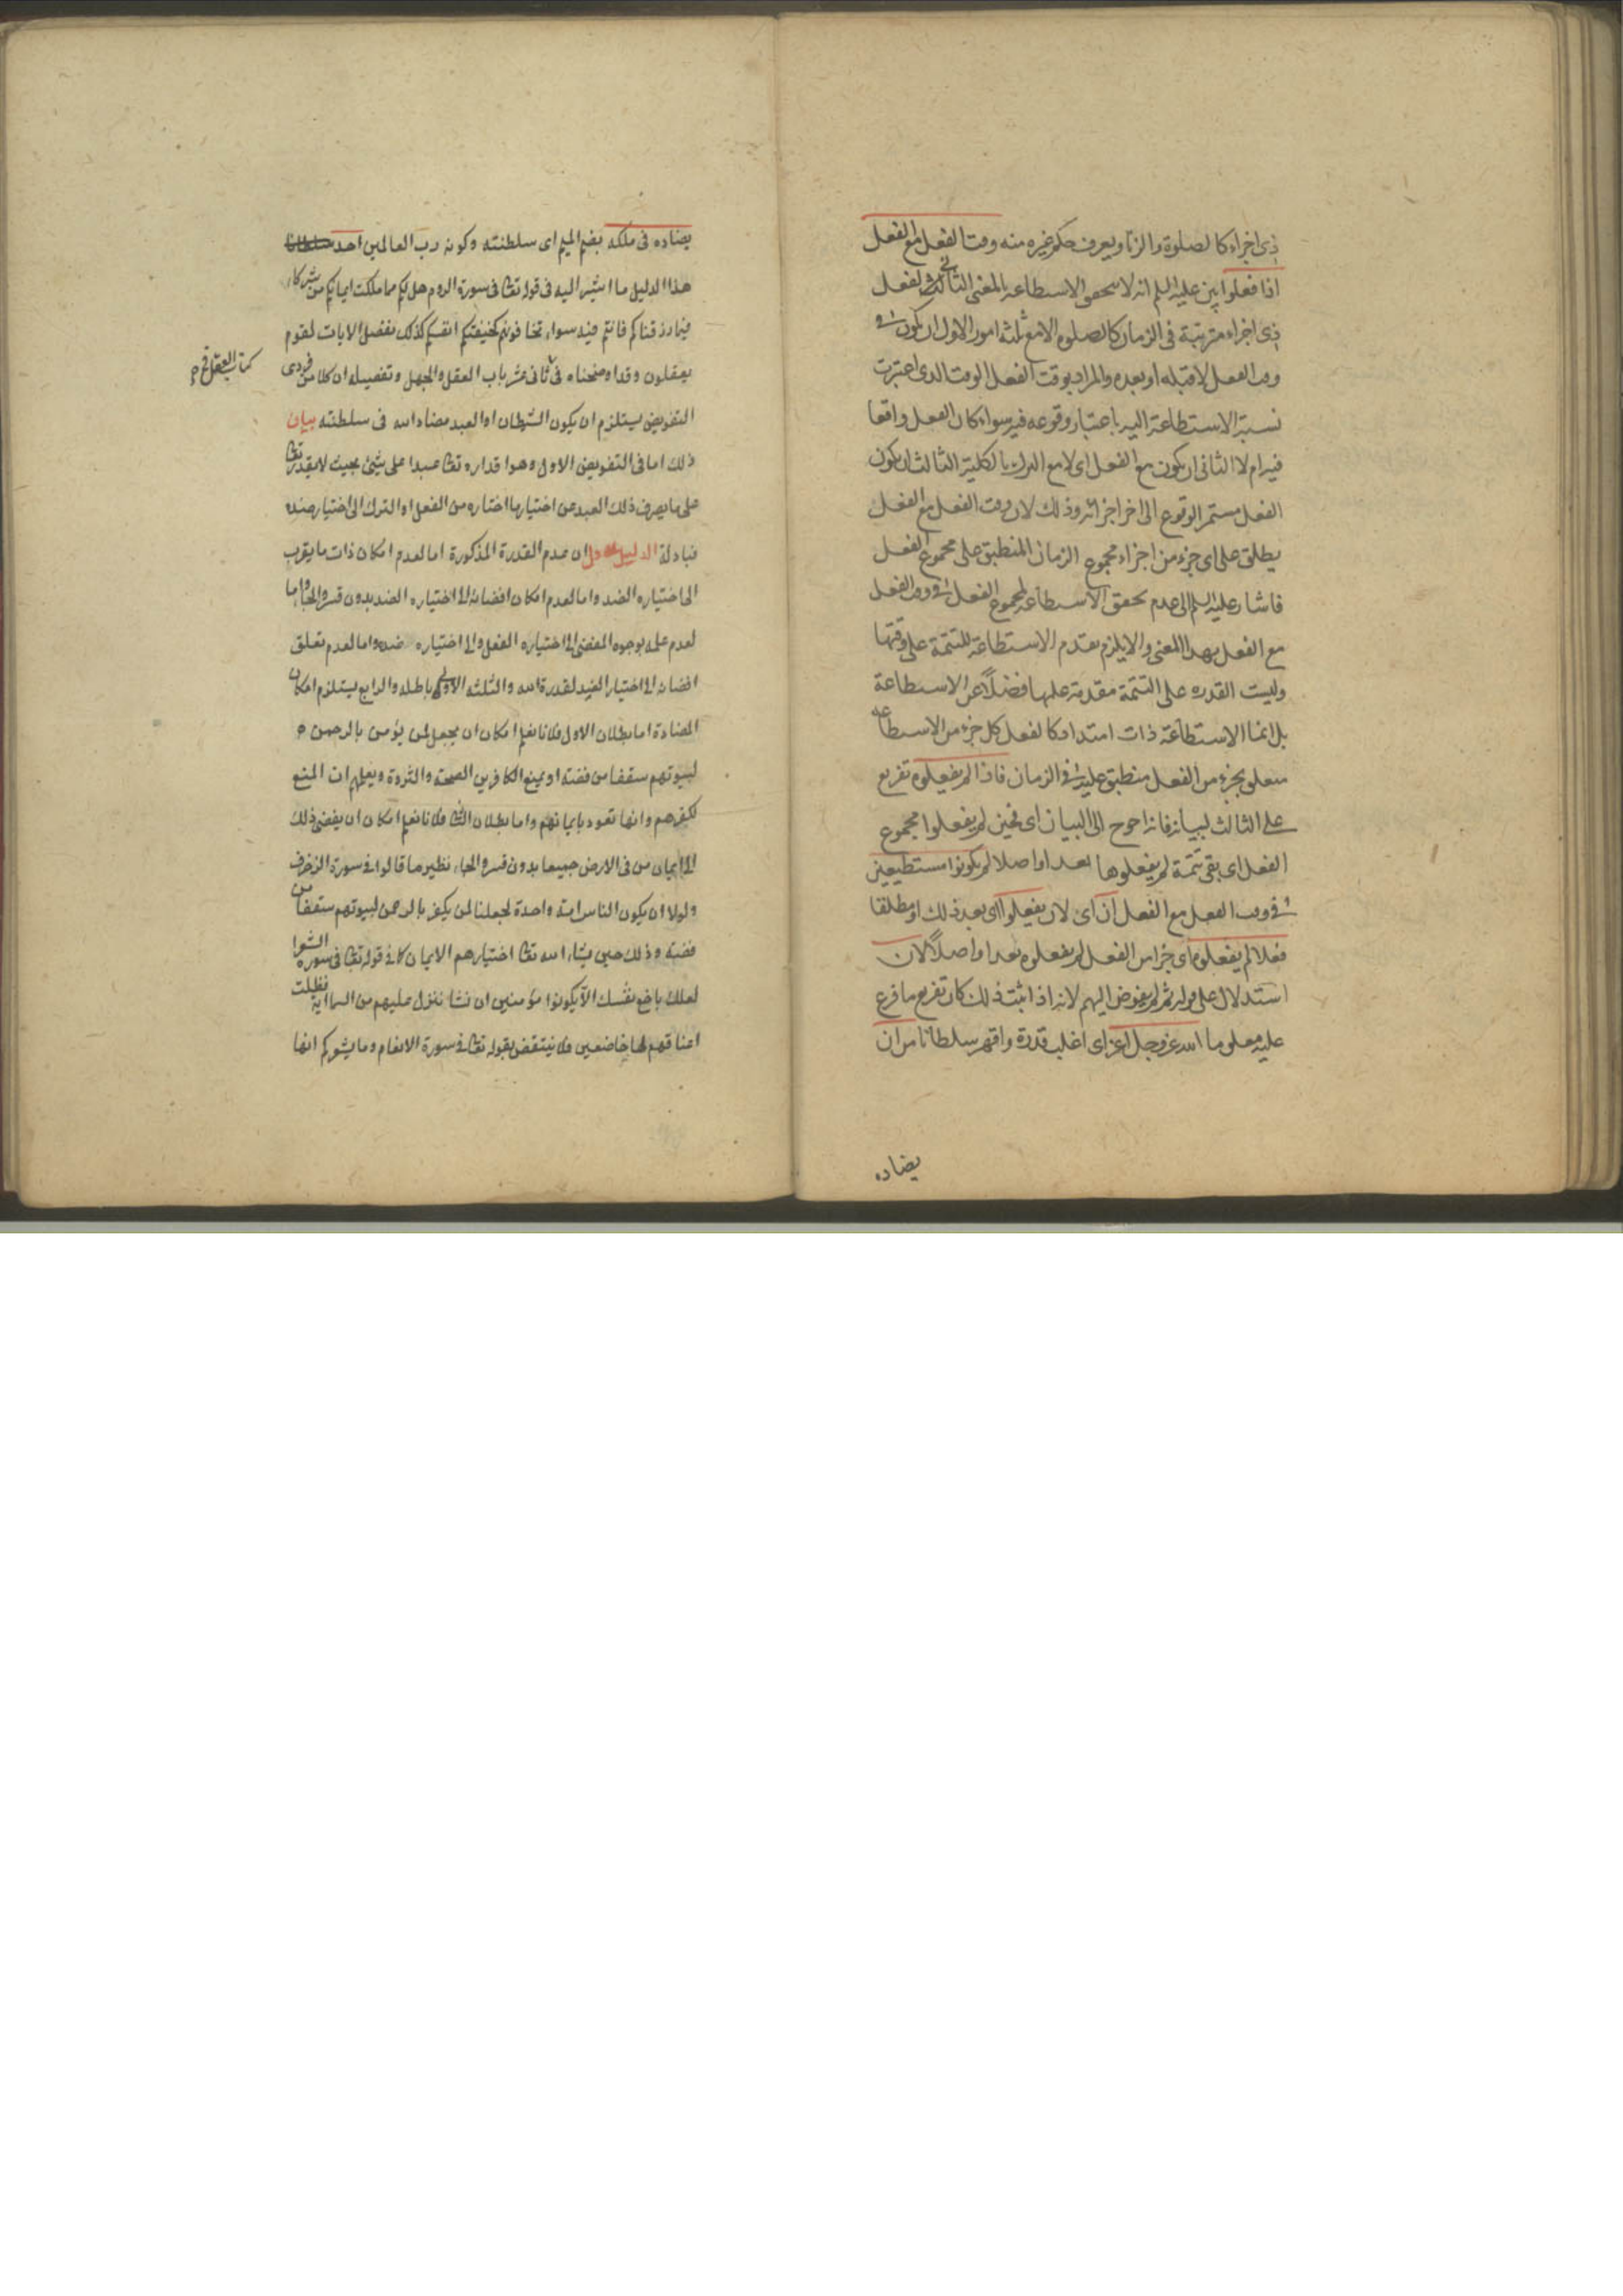 ذی اجزاء كالصلوة والزنا ويعرف حكم غيره منه وقت الفعل مع الفعل
اذا فعلوا بين عليه السلم انه لا يتحقق الاستطاعة بالمعنى الثالث لفعل
ذی اجزاء مترتبة فی الزمان كالصلوة الا مع ثلثة امور الاول ان يكون فی
وقت الفعل لا قبله او بعده والمراد بوقت الفعل الوقت الذی اعتبرت
نسبة الاستطاعة اليه باعتبار وقوعه فيه سواء كان الفعل واقعا
فيه ام لا الثانی ان يكون مع الفعل ای لا مع الترك بالكلية الثالث ان يكون
الفعل مستمر الوقوع الى اخر اجزائه وذلك لان وقت الفعل مع الفعل
يطلق على ای جزء من اجزاء مجموع الزمان المنطبق على مجموع الفعل
فاشار عليه السلم الى عدم تحقق الاستطاعة لمجموع الفعل فی وقت الفعل
مع الفعل بهذا المعنى والا يلزم تقدم الاستطاعة للتتمة على وقتها
وليست القدرة على التتمة مقدمة عليها فضلاً عن الاستطاعة
بل انما الاستطاعة ذات امتداد كالفعل كل جزء من الاستطاعة
متعلق بجزء من الفعل منطبق عليه فی الزمان فاذا لم يفعلوه تفريع
على الثالث لبيانه فانه احوج الى البيان ای فحين لم يفعلوا مجموع
الفعل ای بقی تتمة لم يفعلوها بعد او اصلا لم يكونوا مستطيعين
فی وقت الفعل مع الفعل ان ای لان يفعلوا ای بعد ذلك او مطلقا
فعلا لم يفعلوه ای جزأ من الفعل لم يفعلوه بعد او اصلاً لان
استدلال على قوله ثم لم يفوض اليهم لانه اذا ثبت ذلك كان تفريع ما فرع
عليه معلوما الله عز وجل اعز ای اغلب قدرة واقهر سلطانا من ان
يضاده
يضاده فی ملكه بضم الميم ای سلطنته وكونه رب العالمين احد
هذا الدليل ما اشير اليه فی قوله تعالى فی سورة الروم هل لكم مما ملكت ايمانكم من شركاء
فيما رزقناكم فانتم فيه سواء تخافونهم كخيفتكم انفسكم كذلك نفصل الايات لقوم
يعقلون وقد اوضحناه فی ثانی عشر باب العقل والجهل وتفصيله ان كلا من فردی
كتاب العقل
التفويض يستلزم ان يكون الشيطان او العبد مضادا لله فی سلطنته بيان
ذلك اما فی التفويض الاول وهو اقداره تعالى عبدا على شیء بحيث لا يقدر تعالى
على ما يصرف ذلك العبد عن اختيار ما اختاره من الفعل او الترك الى اختيار ضده
فبادلة الدليل الاول ان عدم القدرة المذكورة اما لعدم امكان ذات ما يقرب
الى اختياره الضد واما لعدم امكان افضائه الى اختياره الضد بدون قسر والجاء واما
لعدم علمه بوجوه المفضی الى اختياره الفعل والى اختياره ضده واما لعدم تعلق
افضائه الى اختيار الضد لقدرة الله والثلثة الاولى باطلة والرابع يستلزم امكان
المضادة اما بطلان الاول فلانا نعلم امكان ان يجعل لمن يؤمن بالرحمن
لبيوتهم سقفا من فضة او يمنع الكافرين الصحة والثروة ويعلمهم ان المنع
لكفرهم وانها تعود بايمانهم واما بطلان الثانی فلانا نعلم امكان ان يفضی ذلك
الى ايمان من فی الارض جميعا بدون قسر والجاء نظير ما قالوا فی سورة الزخرف
ولولا ان يكون الناس امة واحدة لجعلنا لمن يكفر بالرحمن لبيوتهم سقفا من
فضة وذلك حين يشاء الله تعالى اختيارهم الايمان كما فی قوله تعالى فی سورة الشعرا
لعلك باخع نفسك الا يكونوا مؤمنين ان نشا ننزل عليهم من السماء اية فظلت
اعناقهم لها خاضعين فلا ينتقض بقوله تعالى فی سورة الانعام وما يشعركم انها